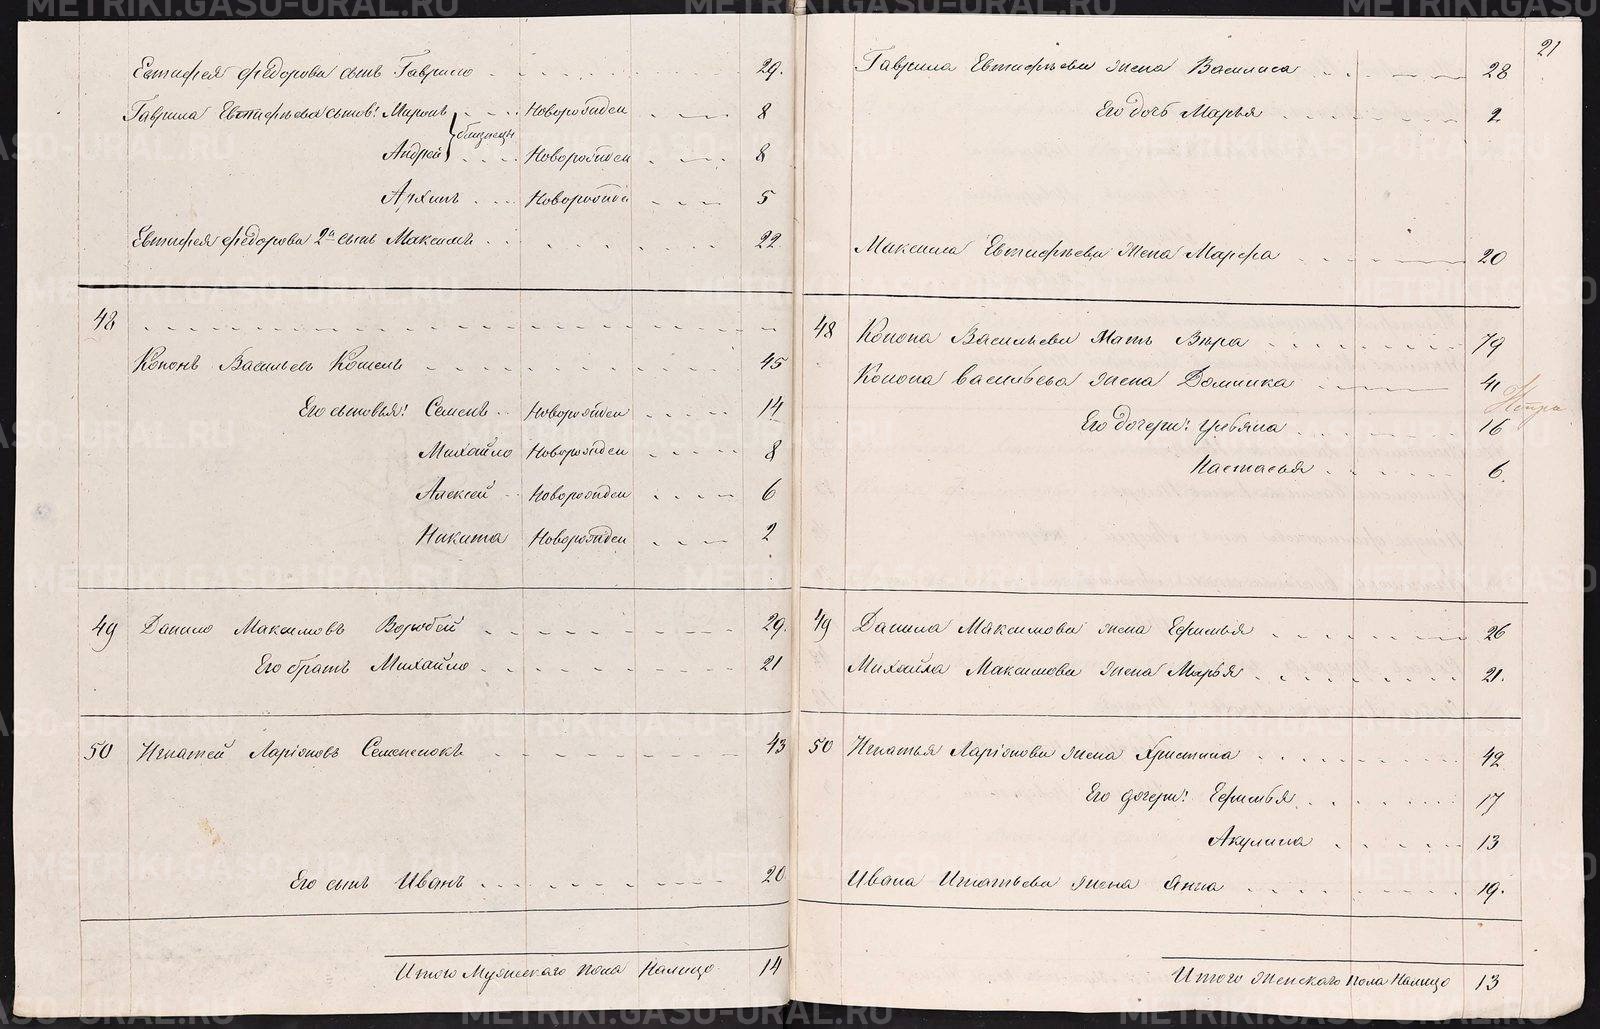 Евтифея Федорова сынъ Гаврило 29.
Гаврила Евтифѣева сынов: Миронъ Новорожден 8
близнецы
Андрей Новорожден 8
Архипъ Новорожде 5
Евтифея Федорова 2й сынъ Максимъ 22
48
Кононъ Васильевъ Кошель 45
Его сыновья: Семенъ Новорожден 14
Михайло Новорожден 8
Алексей Новорожден 6
Никита Новорожден 2
49 Данило Максимовъ Воробей 29.
Его братъ Михайло 21
50 Игнатей Ларіоновъ Семененокъ 43
Его сынъ Иванъ 20.
Итого Мужескаго пола Налицо 14
21
Гаврила Евтифѣева жена Василиса 28
Его дочь Марья 2
Максима Евтифѣева Жена Марфа 20
48 Конона Васильева Мать Вѣра 79
Конона васильева жена Домника 41
Его дочери: Ульяна 16
Настасья 6.
49 Данила Максимова жена Ефимья 26
Михайла Максимова жена Марья 21.
50 Игнатья Ларіонова жена Христина 42
Его дочери: Ефимья 17
Акулина 13
Ивана Игнатьева жена Анна 19.
Итого Женскаго пола Налицо 13
METRIKI.GASO-URAL.RU